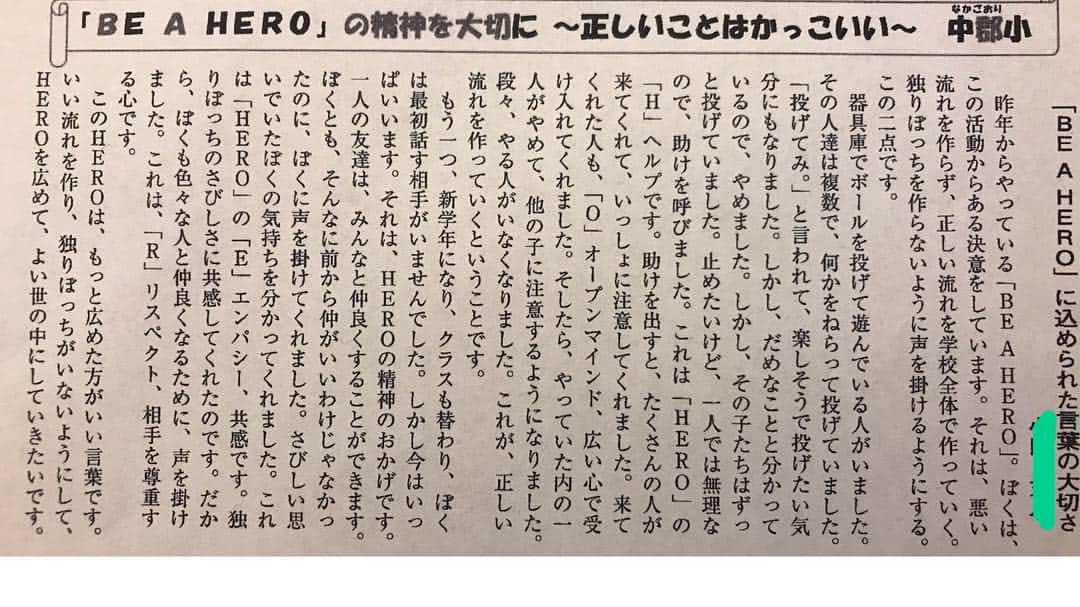 「BE A HERO」の精神を大切に ～正しいことはかっこいい～ 中郡小
なかごおり
「BE A HERO」に込められた言葉の大切さ
昨年からやっている「BE A HERO」。ぼくは、
この活動からある決意をしています。それは、悪い
流れを作らず、正しい流れを学校全体で作っていく。
独りぼっちを作らないように声を掛けるようにする。
この二点です。
器具庫でボールを投げて遊んでいる人がいました。
その人達は複数で、何かをねらって投げていました。
「投げてみ。」と言われて、楽しそうで投げたい気
分にもなりました。しかし、だめなことと分かって
いるので、やめました。しかし、その子たちはずっ
と投げていました。止めたいけど、一人では無理な
ので、助けを呼びました。これは「HERO」の
「H」ヘルプです。助けを出すと、たくさんの人が
来てくれて、いっしょに注意してくれました。来て
くれた人も、「O」オープンマインド、広い心で受
け入れてくれました。そしたら、やっていた内の一
人がやめて、他の子に注意するようになりました。
段々、やる人がいなくなりました。これが、正しい
流れを作っていくということです。
もう一つ、新学年になり、クラスも替わり、ぼく
は最初話す相手がいませんでした。しかし今はいっ
ぱいいます。それは、HEROの精神のおかげです。
一人の友達は、みんなと仲良くすることができます。
ぼくとも、そんなに前から仲がいいわけじゃなかっ
たのに、ぼくに声を掛けてくれました。さびしい思
いでいたぼくの気持ちを分かってくれました。これ
は「HERO」の「E」エンパシー、共感です。独
りぼっちのさびしさに共感してくれたのです。だか
ら、ぼくも色々な人と仲良くなるために、声を掛け
ました。これは、「R」リスペクト、相手を尊重す
る心です。
このHEROは、もっと広めた方がいい言葉です。
いい流れを作り、独りぼっちがいないようにして、
HEROを広めて、よい世の中にしていきたいです。